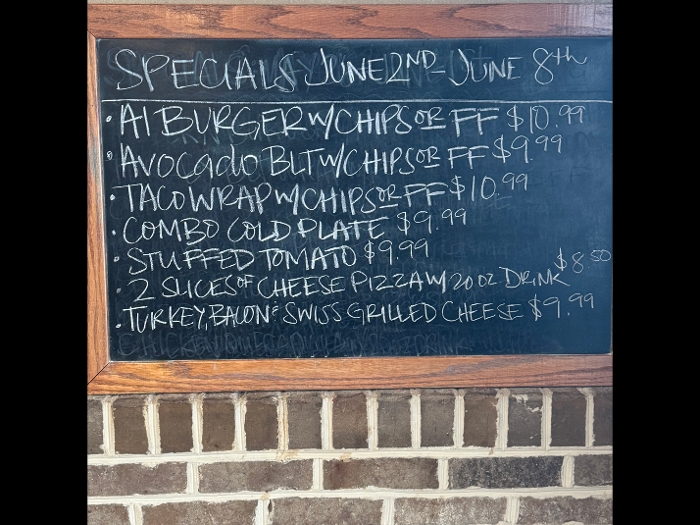 SPECIALS JUNE 2ND - JUNE 8th
• A1 BURGER W/CHIPS OR FF $10.99
• AVOCADO BLT W/CHIPS OR FF $9.99
• TACO WRAP W/CHIPS OR FF $10.99
• COMBO COLD PLATE $9.99
• STUFFED TOMATO $9.99
• 2 SLICES OF CHEESE PIZZA W/ 20 OZ DRINK $8.50
• TURKEY, BACON & SWISS GRILLED CHEESE $9.99